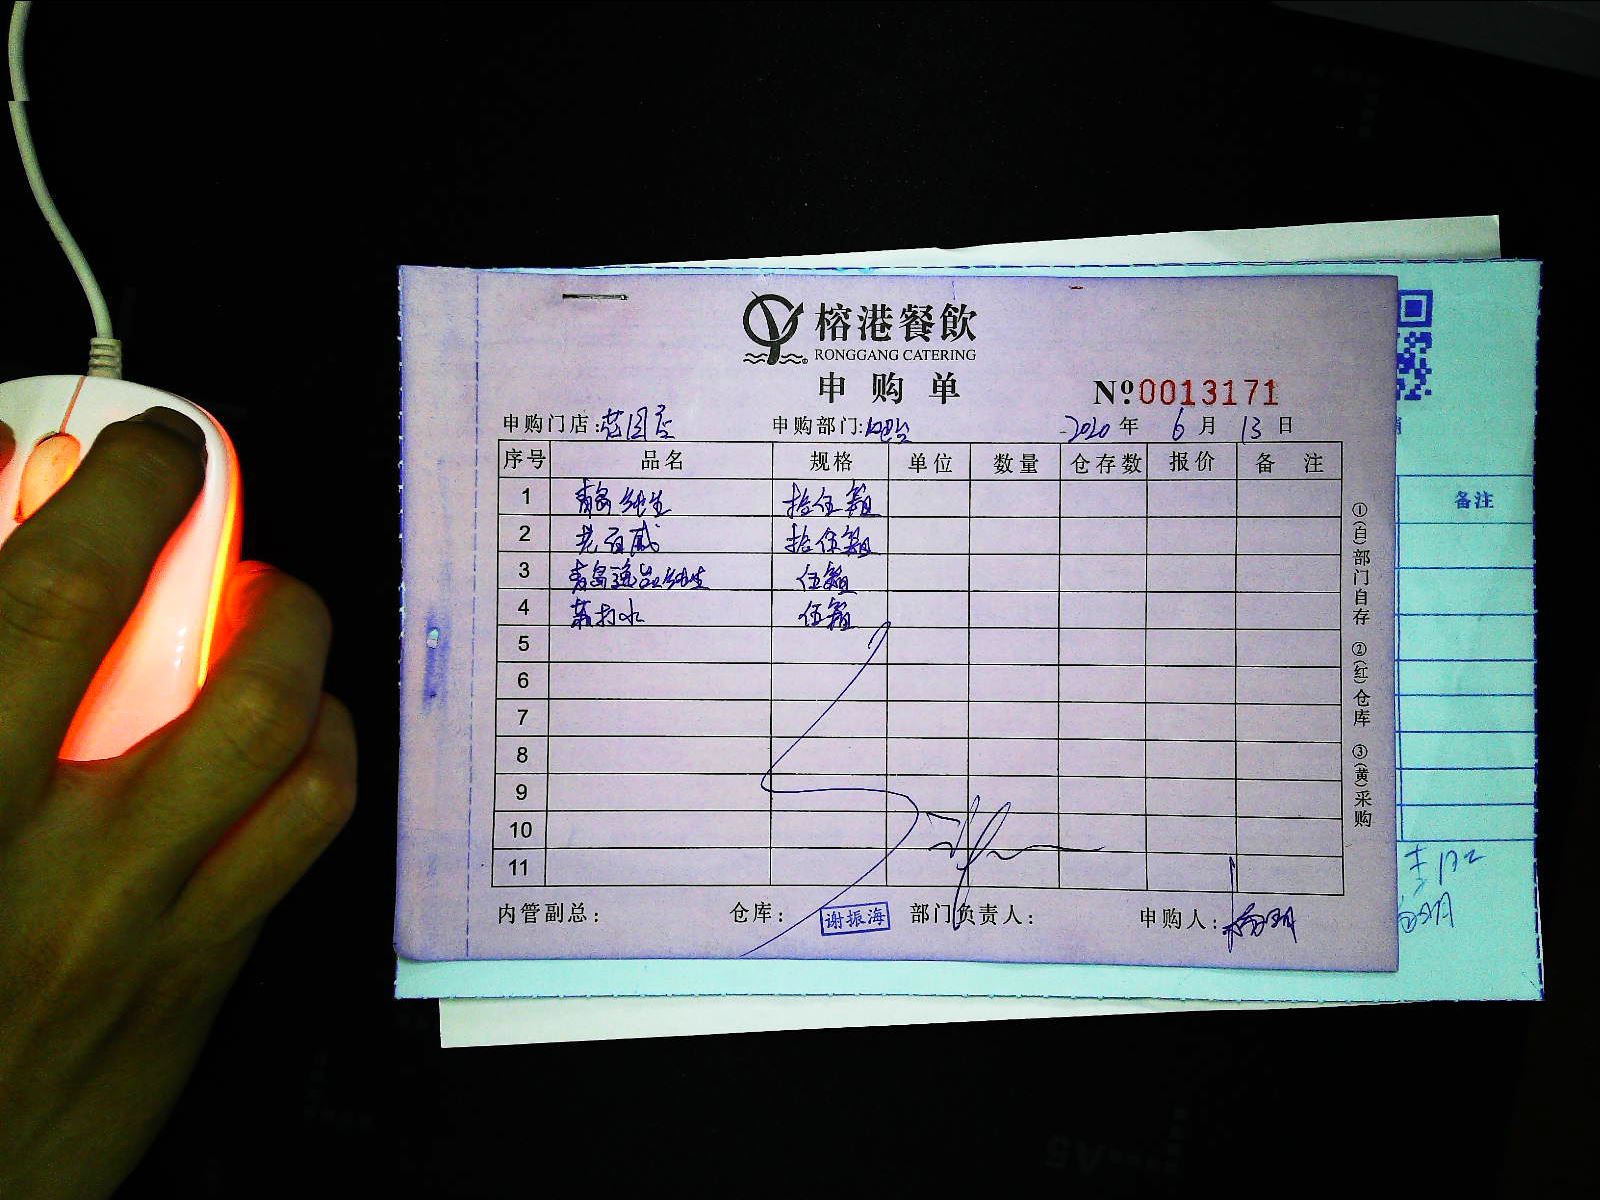 榕港餐飲
RONGGANG CATERING
申购单
Nº 0013171
申购门店: 申购部门:吧台 2020年6月13日
序号 品名 规格 单位 数量 仓存数 报价 备注
1 青岛纯生 拾伍箱
2 老百威 拾伍箱
3 青岛逸品纯生 伍箱
4 苏打水 伍箱
5
6
7
8
9
10
11
内管副总: 仓库: 谢振海 部门负责人: 申购人:
①(白)部门自存 ②(红)仓库 ③(黄)采购
备注